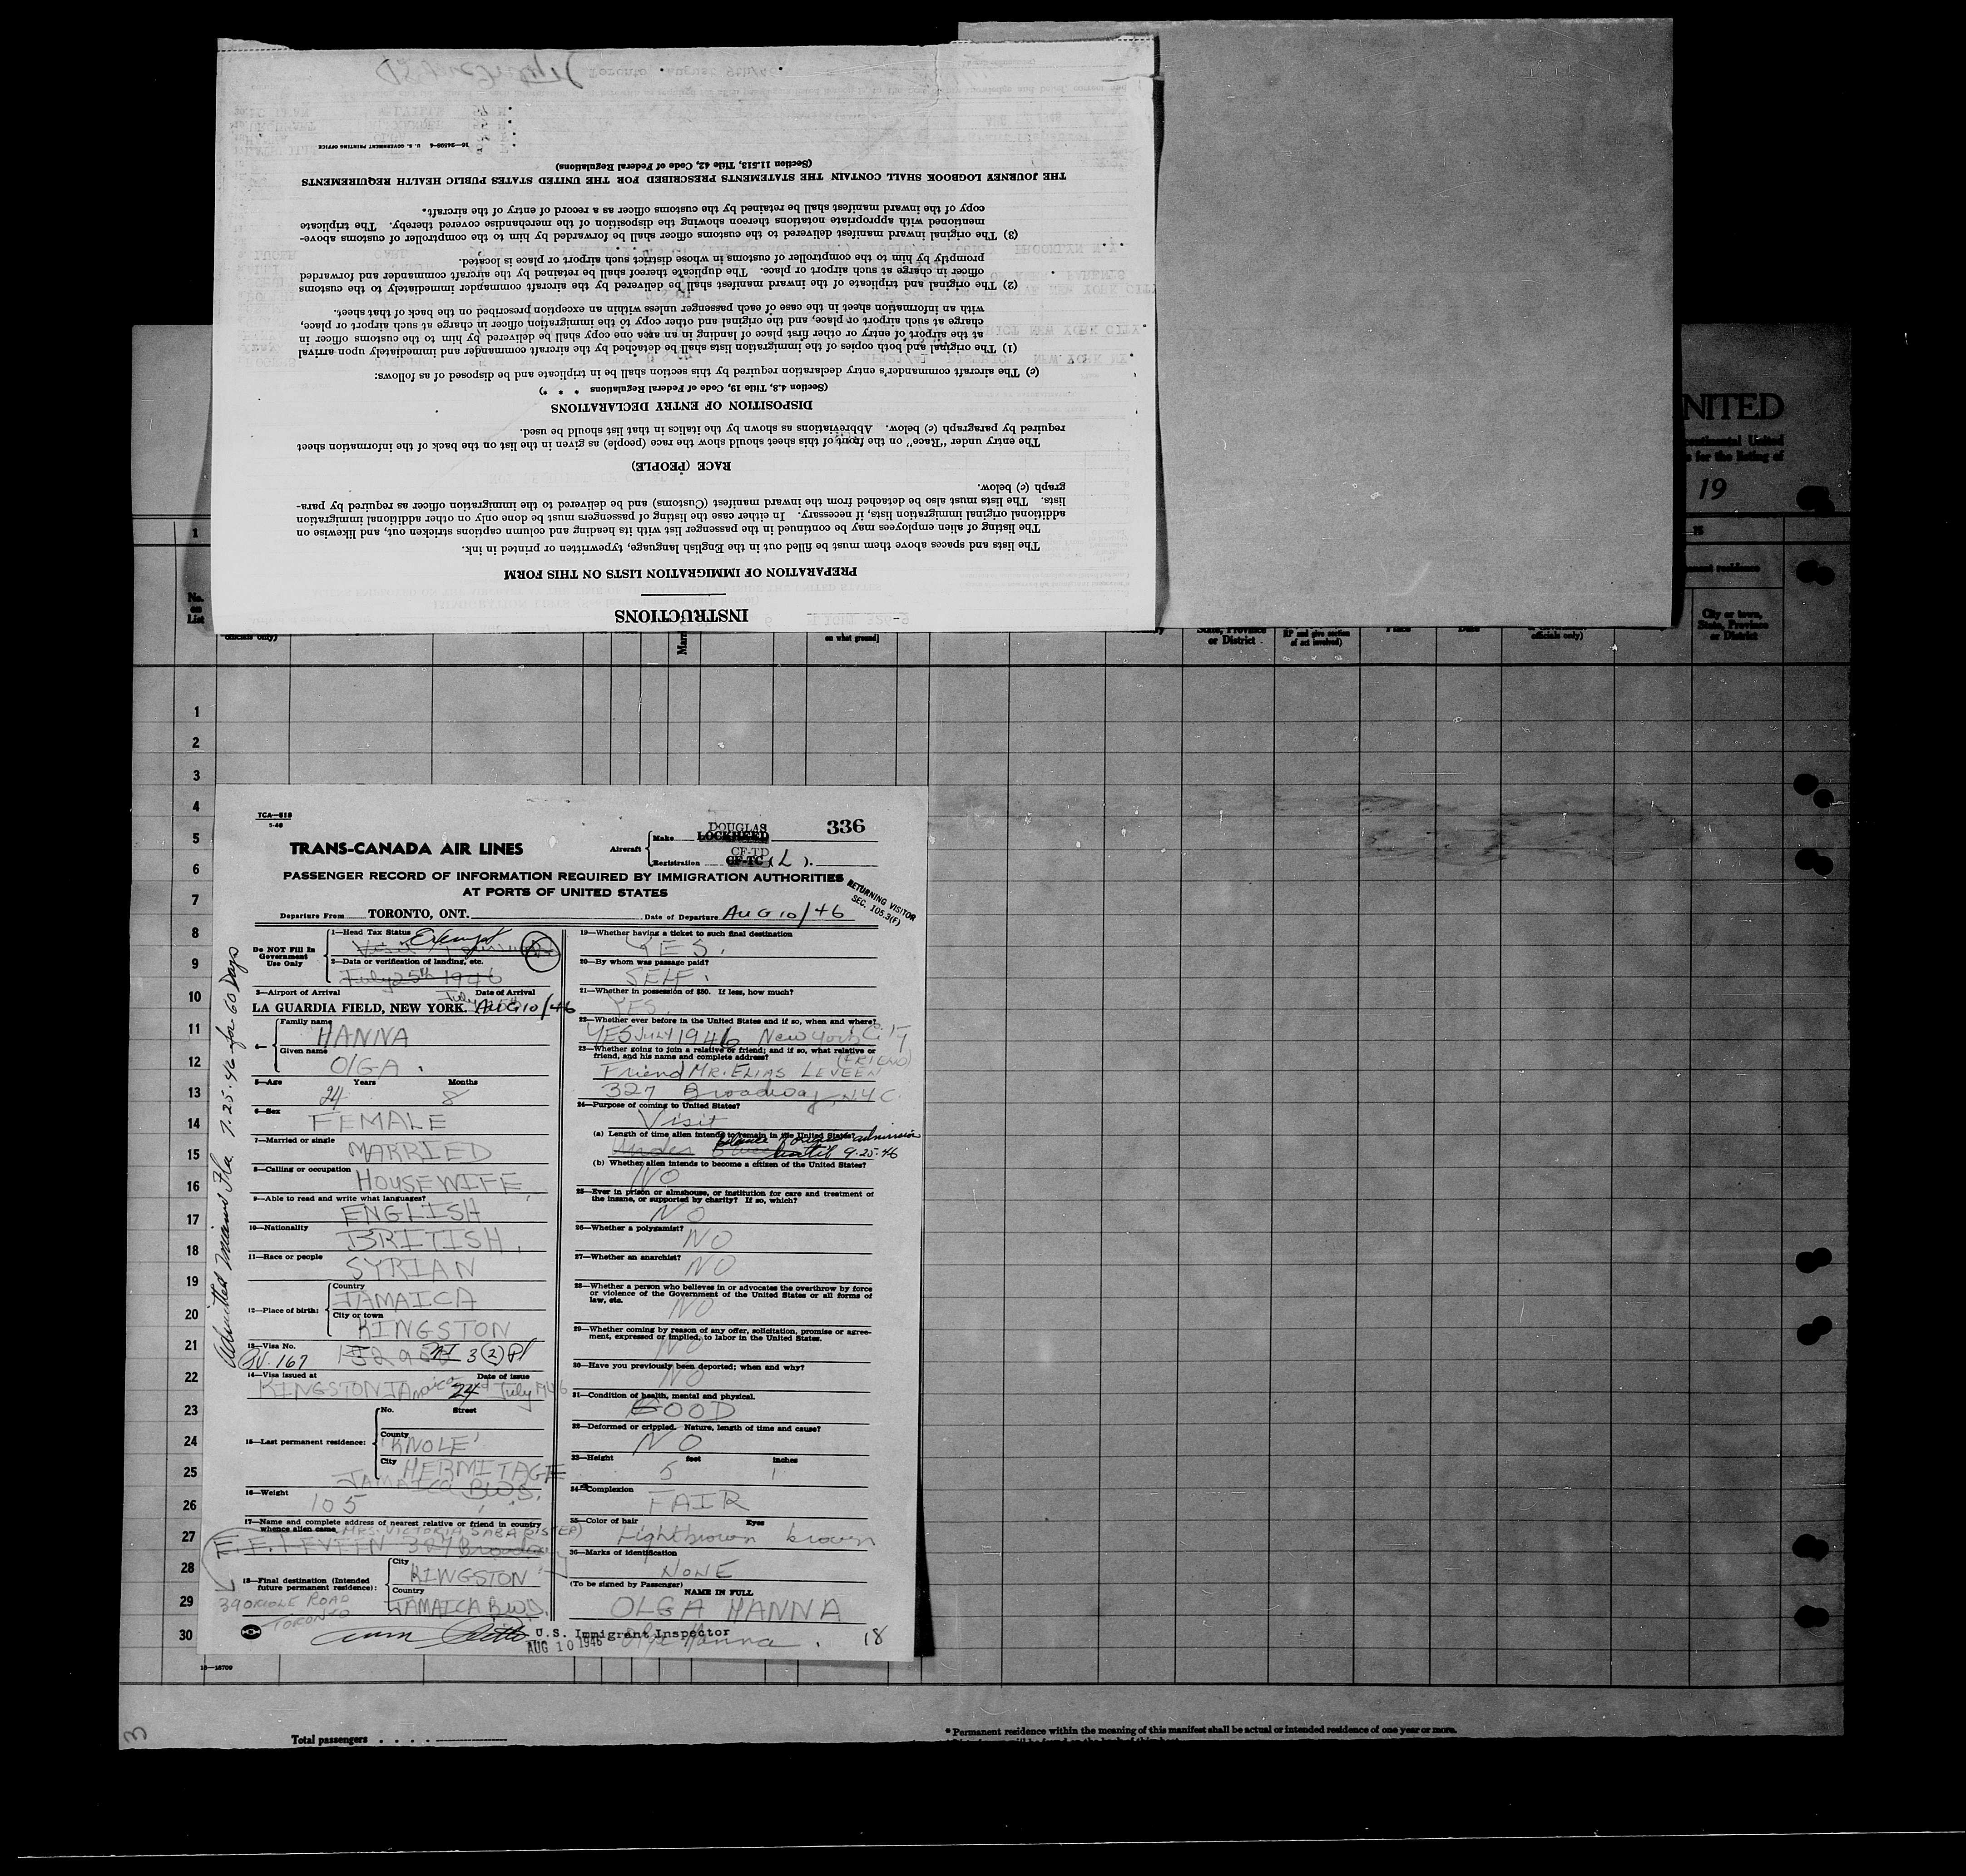 INSTRUCTIONS
PREPARATION OF IMMIGRATION LISTS ON THIS FORM
The lists and spaces above them must be filled out in the English language, typewritten or printed in ink.
The listing of alien employees may be continued in the passenger list with its heading and column captions stricken out, and likewise on
additional original immigration lists, if necessary. In either case the listing of passengers must be done only on other additional immigration
lists. The lists must also be detached from the inward manifest (Customs) and be delivered to the immigration officer as required by para-
graph (c) below.
RACE (PEOPLE)
The entry under "Race" on the front of this sheet should show the race (people) as given in the list on the back of the information sheet
required by paragraph (c) below. Abbreviations as shown by the italics in that list should be used.
DISPOSITION OF ENTRY DECLARATIONS
(Section 4.8, Title 19, Code of Federal Regulations * * *)
(c) The aircraft commander's entry declaration required by this section shall be in triplicate and be disposed of as follows:
(1) The original and both copies of the immigration lists shall be detached by the aircraft commander and immediately upon arrival
at the airport of entry or other first place of landing in an area one copy shall be delivered by him to the customs officer in
charge at such airport or place, and the original and other copy to the immigration officer in charge at such airport or place,
with an information sheet in the case of each passenger unless within an exception prescribed on the back of that sheet.
(2) The original and triplicate of the inward manifest shall be delivered by the aircraft commander immediately to the customs
officer in charge at such airport or place. The duplicate thereof shall be retained by the aircraft commander and forwarded
promptly by him to the comptroller of customs in whose district such airport or place is located.
(3) The original inward manifest delivered to the customs officer shall be forwarded by him to the comptroller of customs above-
mentioned with appropriate notations thereon showing the disposition of the merchandise covered thereby. The triplicate
copy of the inward manifest shall be retained by the customs officer as a record of entry of the aircraft.
THE JOURNEY LOGBOOK SHALL CONTAIN THE STATEMENTS PRESCRIBED FOR THE UNITED STATES PUBLIC HEALTH REQUIREMENTS
(Section 11.513, Title 42, Code of Federal Regulations)
16—24598-4 U. S. GOVERNMENT PRINTING OFFICE
NITED
continental United
for the listing of
19
1
15
residence
No. on List
officials only)
on what ground]
State, Province or District
RP and give section of act involved)
Place
Date
officials only)
City or town, State, Province or District
1
2
3
4
5
6
7
8
9
10
11
12
13
14
15
16
17
18
19
20
21
22
23
24
25
26
27
28
29
30
TCA—618
TRANS-CANADA AIR LINES
Aircraft
Make DOUGLAS LOCKHEED
336
Registration CF-TD CF-TC (L).
PASSENGER RECORD OF INFORMATION REQUIRED BY IMMIGRATION AUTHORITIES
AT PORTS OF UNITED STATES
RETURNING VISITOR
SEC. 105.3(F)
Departure From TORONTO, ONT. Date of Departure AUG 10/46
Do NOT Fill In Government Use Only
1—Head Tax Status Exempt
2—Data or verification of landing, etc.
July 25th 1946
3—Airport of Arrival Date of Arrival
LA GUARDIA FIELD, NEW YORK. AUG 10/46
4—
Family name HANNA
Given name OlGA.
5—Age Years Months
24 8
6—Sex FEMALE
7—Married or single MARRIED
8—Calling or occupation HOUSEWIFE
9—Able to read and write what languages? ENGLISH
10—Nationality BRITISH
11—Race or people SYRIAN
12—Place of birth:
Country JAMAICA
City or town KINGSTON
13—Visa No.
167 3(2)
14—Visa issued at Date of issue
KINGSTON JAmaica 24 July 1946
15—Last permanent residence:
No. Street
County 'KNOLE'
City HERMITAGE
JAMAICA B.W.I.
16—Weight 105
17—Name and complete address of nearest relative or friend in country
whence alien came MRS. VICTORIA SABA (SISTER)
E. E. LEVEEN 327 Broadway
18—Final destination (Intended future permanent residence):
City KINGSTON
Country JAMAICA B.W.I.
390 RIOLE ROAD
TORONTO
Admitted Miami Fla. 7.25.46 for 60 Days
19—Whether having a ticket to such final destination
YES.
20—By whom was passage paid?
SELF.
21—Whether in possession of $50. If less, how much?
YES.
22—Whether ever before in the United States and if so, when and where?
YES JULY 1946 New York CITY
23—Whether going to join a relative or friend; and if so, what relative or
friend, and his name and complete address? (FRIEND)
Friend MR. ELIAS LEVEEN
327 Broadway, N.Y.C.
24—Purpose of coming to United States?
Visit
(a) Length of time alien intends to remain in the United States?
balance of admission
until 9-25-46
(b) Whether alien intends to become a citizen of the United States?
NO
25—Ever in prison or almshouse, or institution for care and treatment of
the insane, or supported by charity? If so, which?
NO
26—Whether a polygamist? NO
27—Whether an anarchist? NO
28—Whether a person who believes in or advocates the overthrow by force
or violence of the Government of the United States or all forms of
law, etc. NO
29—Whether coming by reason of any offer, solicitation, promise or agree-
ment, expressed or implied, to labor in the United States.
NO
30—Have you previously been deported; when and why?
NO
31—Condition of health, mental and physical.
GOOD
32—Deformed or crippled. Nature, length of time and cause?
NO
33—Height 5 feet 1 inches
34—Complexion FAIR
35—Color of hair Eyes
Light brown brown
36—Marks of identification
NONE
(To be signed by Passenger) NAME IN FULL
OLGA HANNA
U.S. Immigrant Inspector
AUG 10 1946
Olga Hanna. 18
16—18709
Total passengers . . . .
* Permanent residence within the meaning of this manifest shall be actual or intended residence of one year or more.